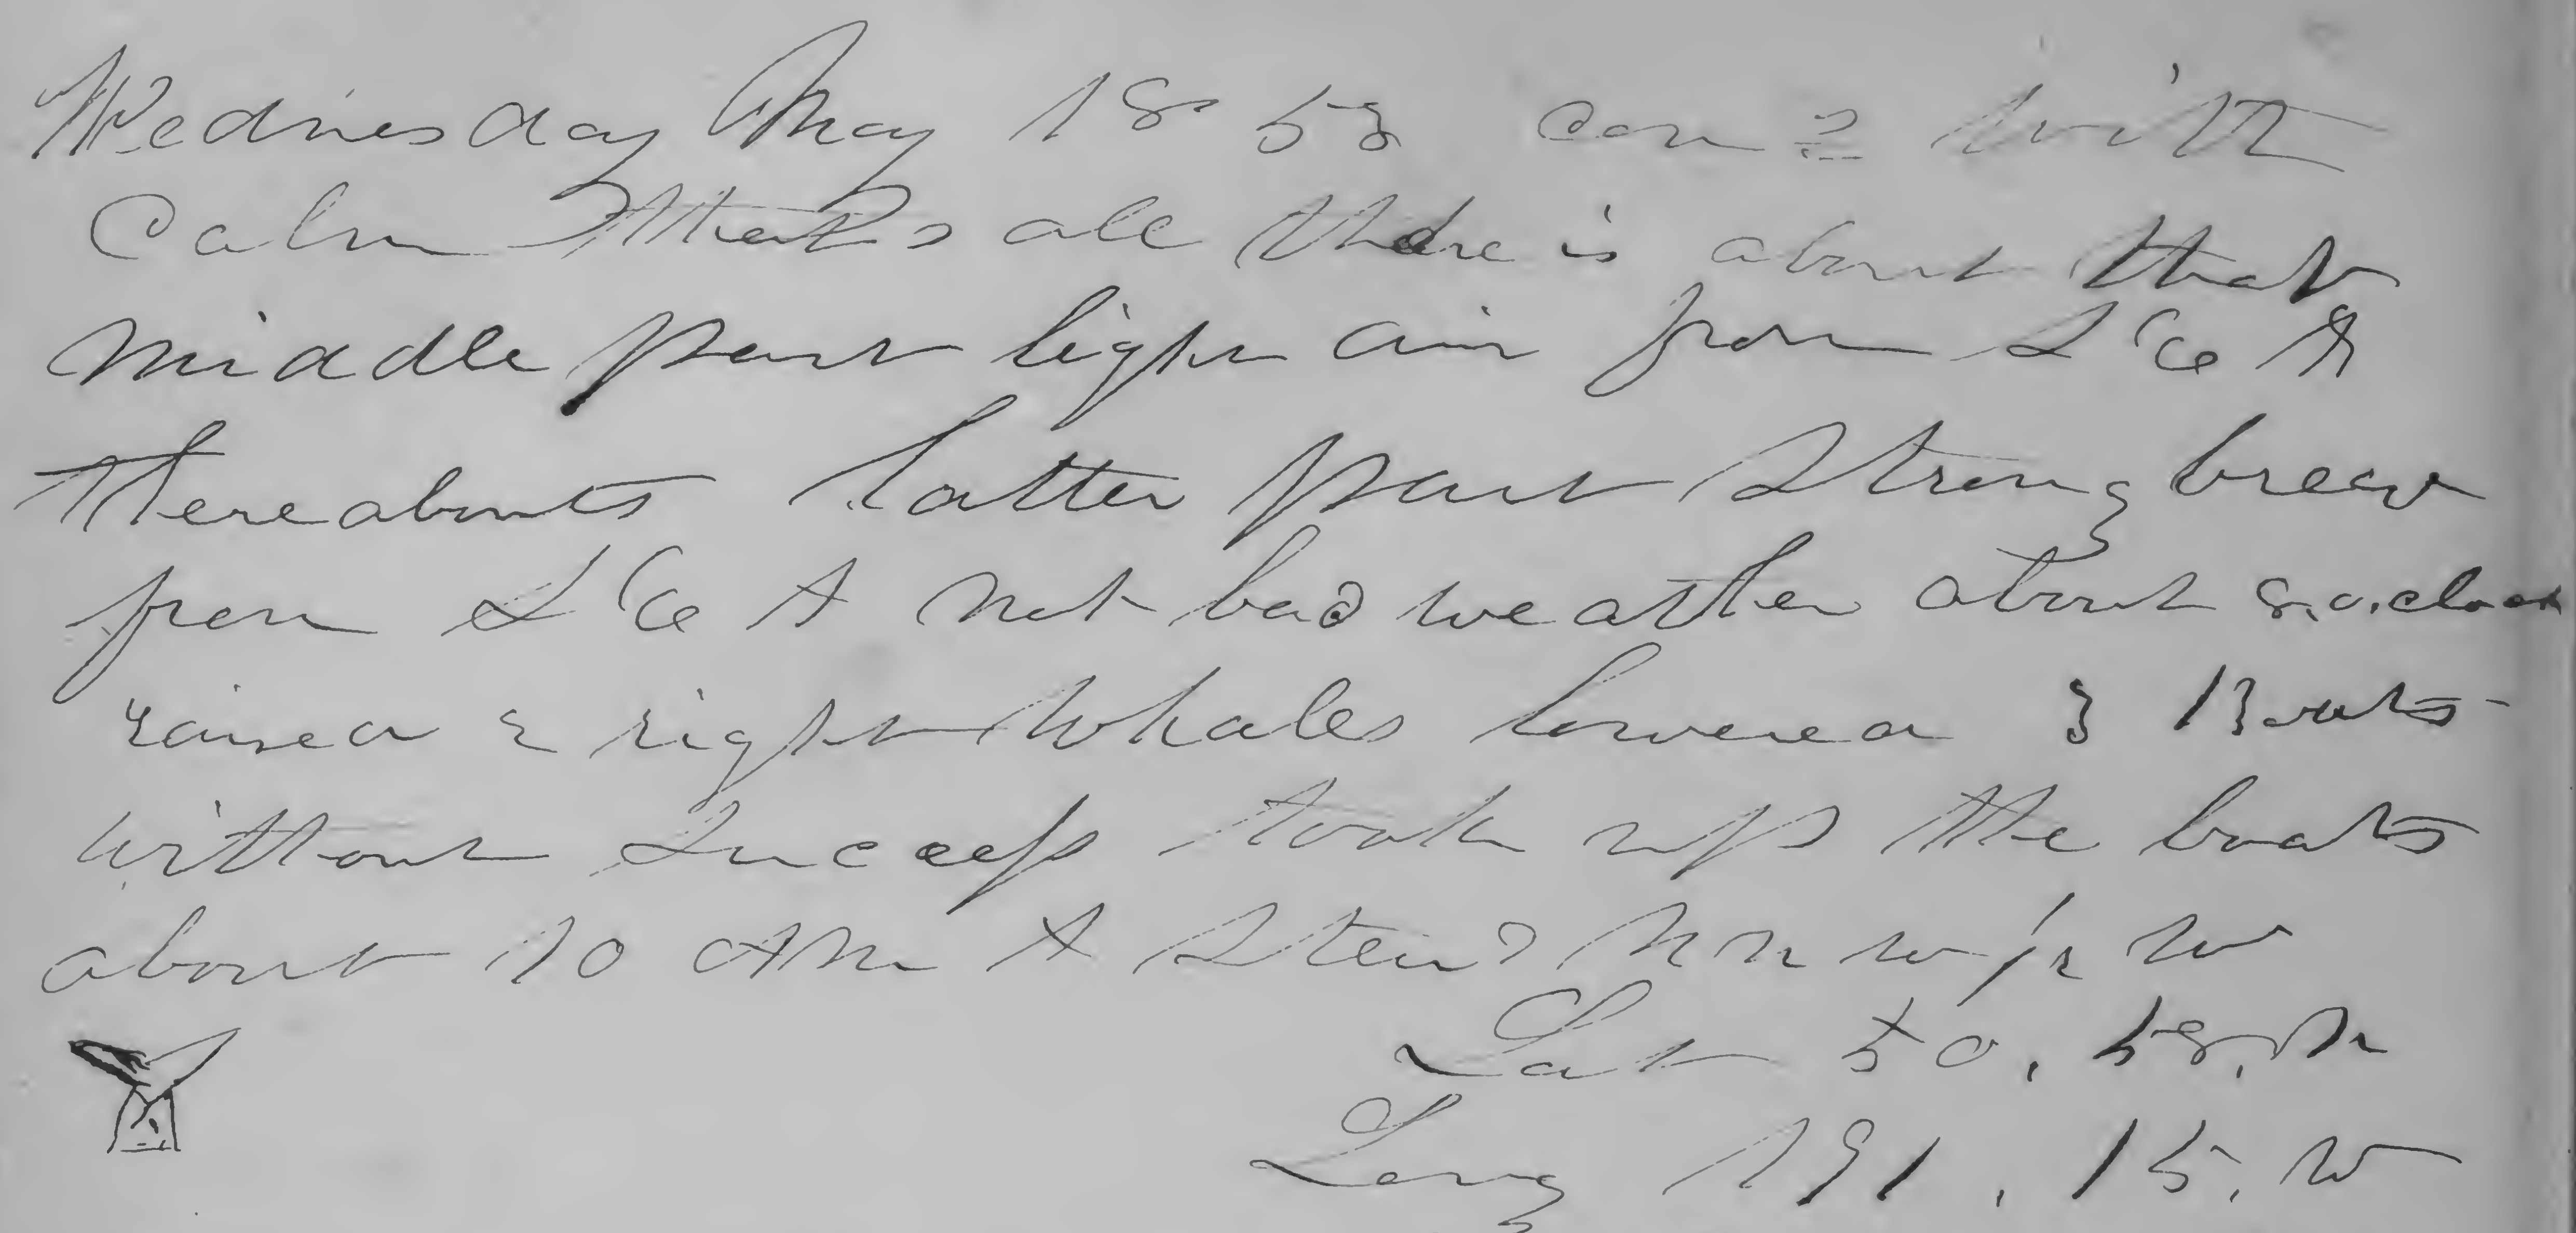 Wednesday May 18 53 comd with
Calm thats all there is about that
middle part light air from S E &
thereabouts latter part strong breeze
from S E & not bad weather about 8.o.clock
raised 2 right whales lowered 3 Boats
without success took up the boats
about 10 AM & steerd N N W 1/2 W
Lat 50.58.N
Long 191.15.W